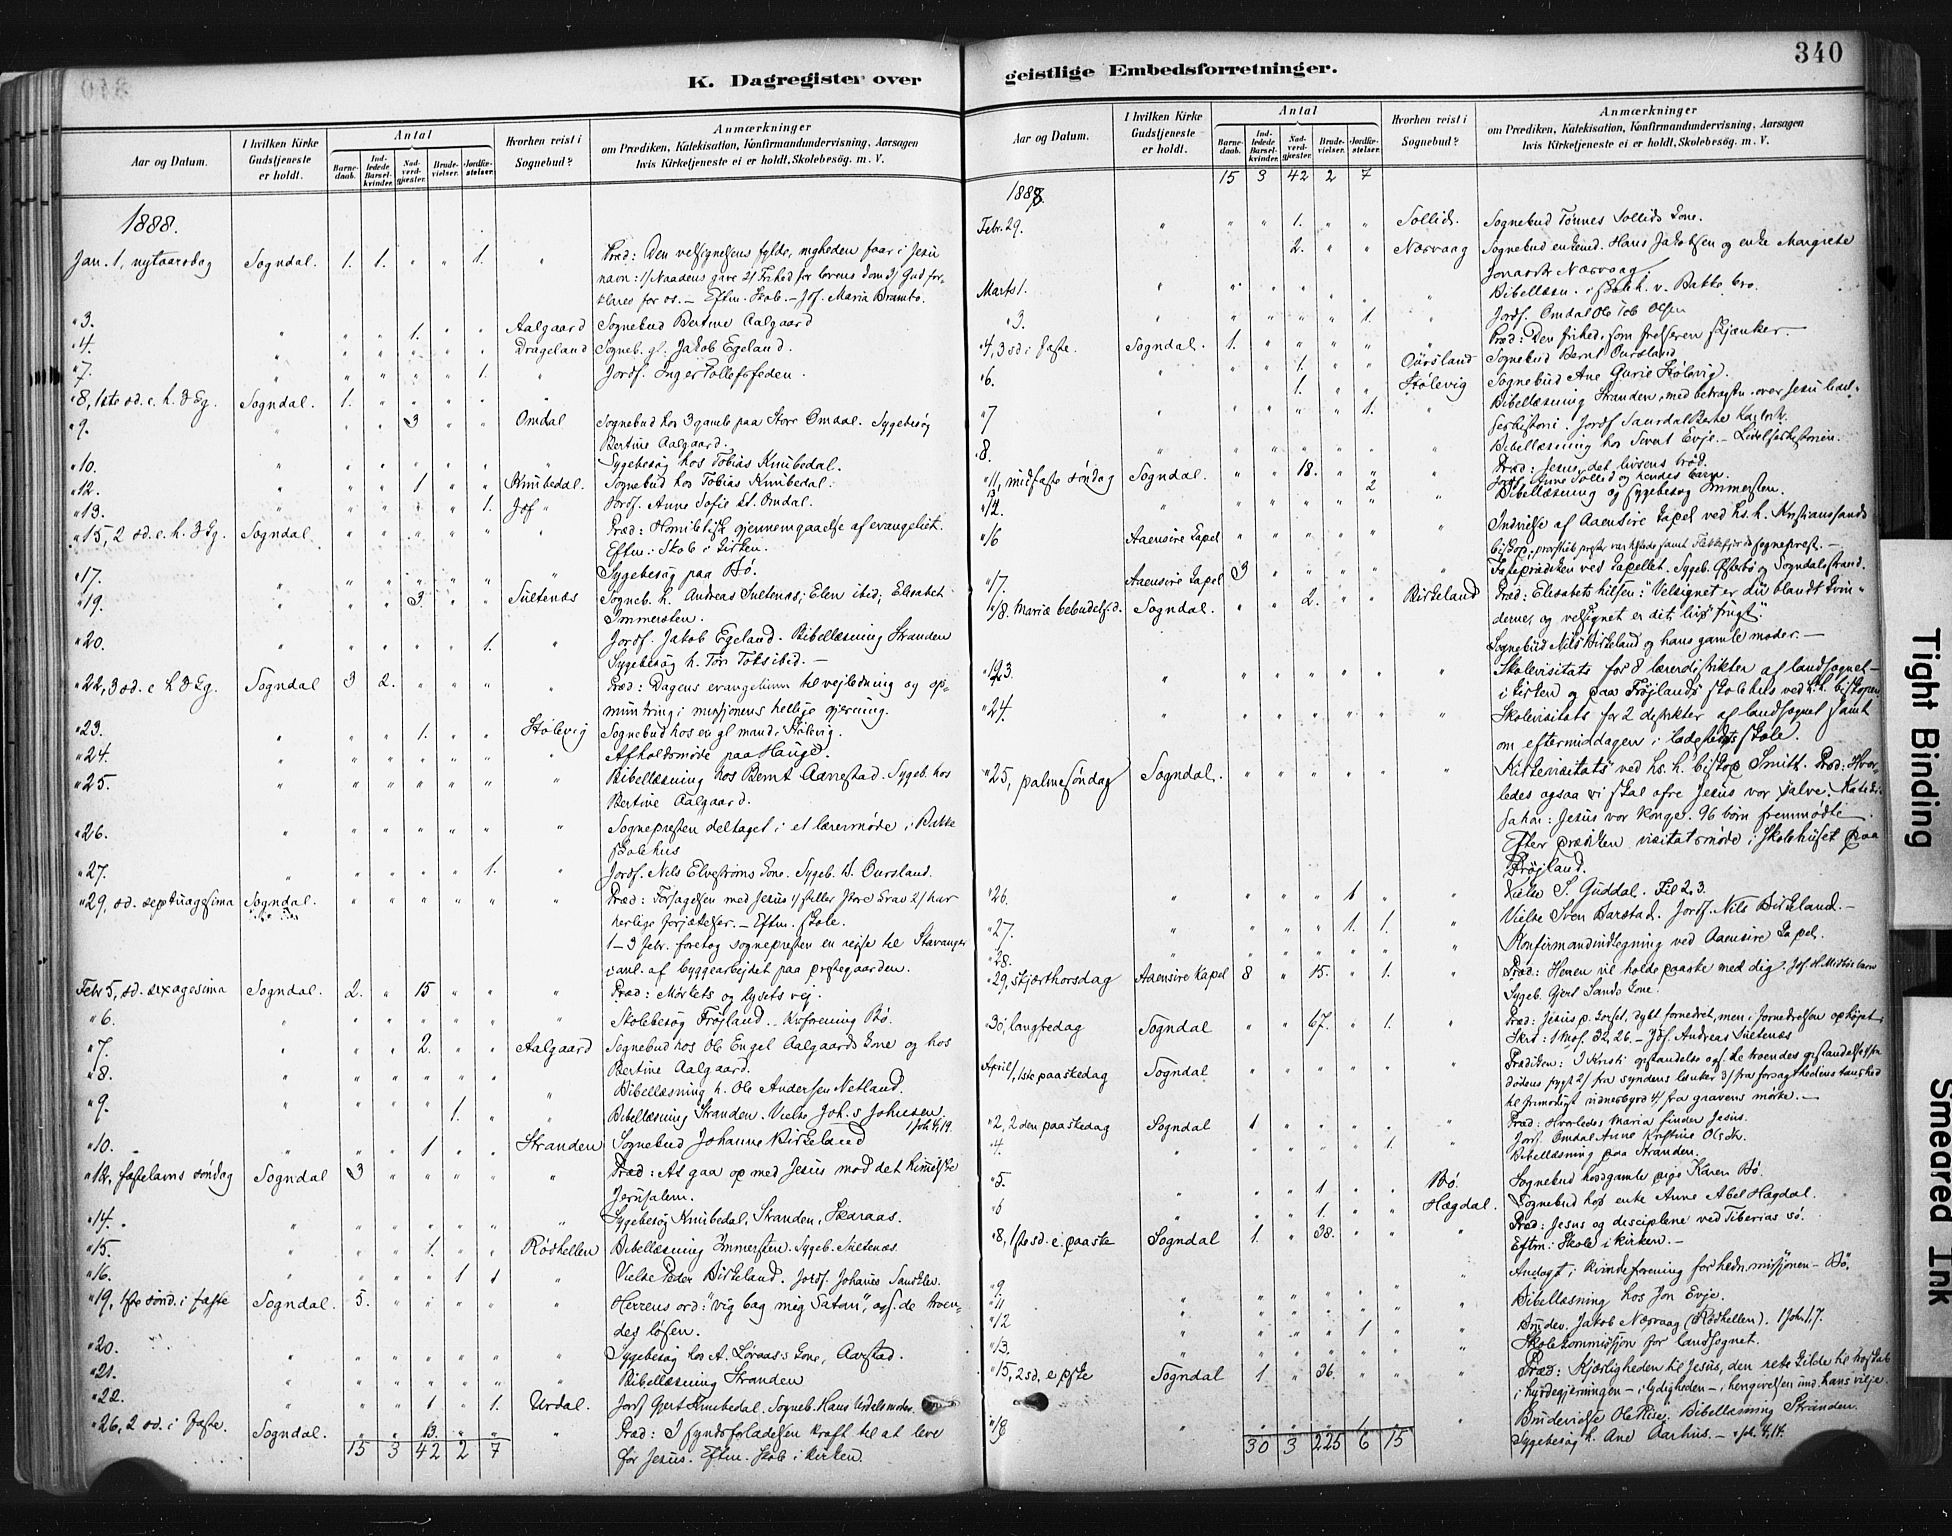 340
K. Dagregister over geistlige Embedsforretninger.
Aar og Datum. I hvilken Kirke Gudstjeneste er holdt. Antal Barnedaab. Indledede Barselkvinder. Nadverdgjæster. Brudevielser. Jordfæstelser. Hvorhen reist i Sognebud? Anmærkninger om Prædiken, Katekisation, Konfirmandundervisning, Aarsagen hvis Kirketjeneste ei er holdt, Skolebesøg. m. V.
1888.
Jan. 1, nytaarsdag Sogndal. 1. 1. " " 1. " Præd: Den velsignelsens fylde, migheden faar i Jesu
navn: 1/ Naadens gave 2/ Frihed for lovens dom 3/ Gud for-
klares for os. – Eftm. Skob. – Jof. Maria Brambo.
" 3. " " " 1. " " Aalgaard Sognebud Bertine Aalgaard
" 4. " " " " " " Drageland Sogneb. gl. Jakob Egeland.
" 7. " " " " " 1. " Jordf. Inger Tollefsfeden.
" 8, 1ste sd. e. h. 3 Kg. Sogndal. 1. " " " "
" 9. " " " 3 " " Omdal Sognebud hos 3 gamle paa Store Omdal. Sygebesøg
Bertine Aalgaard.
" 10. " " " " " " " Sygebesøg hos Tobias Knubedal.
" 12. " " " 1 " " Knubedal. Sognebud hos Tobias Knubedal.
" 13. " " " " " 1. Jordf. Anne Sofie Omdal.
" 15, 2 sd. e. h. 3 Kg. Sogndal. " " " " " " Præd: Homiletisk gjennemgaaelse af evangeliet.
Eftm.: Skob i kirken.
" 17. " " " " " " " Sygebesøg paa Bø.
" 19. " " " 3. " " Sultenæs Sogneb. h. Andreas Sultenæs; Elen ibid; Elisabet
Immersten.
" 20. " " " " " 1. Jordf. Jakob Egeland. Bibellæsning Stranden
Sygebesøg h. Tør. –
" 22, 3 sd. e. h. 3 Kg. Sogndal 3 2. " " " " Præd: Dagens evangelium til vejledning og op-
muntring i missjonens hellige gjerning.
" 23. " " " 1. " " Stølevig Sognebud hos en gl. mand i Stølevig.
" 24. " " " " " " " Afholdsmøde paa Hauge.
" 25. " " " " " " " Bibellæsning hos Bernt Aanestad. Sygeb. hos
Bertine Aalgaard.
" 26. " " " " " " " Sognepresten deltaget i et lærermøde i Bakke
skolehus
" 27. " " " " " 1. " Jordf. Nils Elvestrøms kone. Sygeb. B. Oursland.
" 29, sd. septuagesima Sogndal. " " " " " " Præd: Forsagelsen med Jesus 1/ stiller store krav 2/ har
herlige forjættelser. – Eftm. skole.
1–3 febr. foretog sognepresten en reise til Stavanger
i anl. af byggearbejdet paa prestegaarden.
Febr 5, sd. sexagesima Sogndal. 2. " 15 " " " Præd: Mørkets og lysets vej.
" 6. " " " " " " " Skolebesøg Frøjland. Kvforening Bø.
" 7. " " " 2. " " Aalgaard Sognebud hos Ole Engel Aalgaards kone og hos
Bertine Aalgaard.
" 8. " " " " " " " Bibellæsning h. Ole Andersen Netland.
" 9. " " " " 1. " " Bibellæsning Stranden. Vielse Joh. s Johnsen.
1 Joh. 4,19.
" 10. " " " 1 " " Stranden Sognebud Johanne Birkeland
" 12, fastelavns søndag Sogndal 3 " " " " " Præd: At gaa op med Jesus mod det himmelske
Jerusalem.
" 14. " " " " " " " Sygebesøg Knubedal, Stranden, Skaraas.
" 15. " " " 1. " " Rødhellen Bibellæsning Immersten. Sygeb. Sultenæs
" 16. " " " " 1 1 " Vielse Peder Birkeland. Jordf. Johanes
" 19, 1ste sønd. i faste Sogndal. 5. " " " " " Herrens ord: "vig bag mig Satan", ogs. de troen-
des løsen.
" 20. " " " " " " " Sygebesøg hos A. Løraas's kone, Aarstad.
" 21. " " " " " " " Bibellæsning Stranden
" 22. " " " 1 " 1. Urdal. Jordf Gjert Knubedal. Sogneb. Hans Urdals moder.
" 26, 2 sd. i faste. Sogndal. " " 13. " " " Præd: I syndsforladelsen kraft til at leve
15 3 42 2 7 for Jesus. Eftm. Skob i kirken.
Aar og Datum. I hvilken Kirke Gudstjeneste er holdt. Antal Barnedaab. Indledede Barselkvinder. Nadverdgjæster. Brudevielser. Jordfæstelser. Hvorhen reist i Sognebud? Anmærkninger om Prædiken, Katekisation, Konfirmandundervisning, Aarsagen hvis Kirketjeneste ei er holdt, Skolebesøg. m. V.
15 3 42 2 7
1888.
Febr. 29. " " " 1. " " Sollid. Sognebud Tønnes Sollids kone.
2. " " Næsvaag Sognebud enkemd. Hans Jakobsen og enke Margrete
Jonasdtr Næsvaag.
Marts 1. " " " " " " " Bibellæsn. i skoleh. v. Bakke bro.
" 3. " " " " " 1. " Jordf. Omdal Ole Tob Olsen
" 4, 3 sd i faste. Sogndal. 1. " " " " " Præd: Den frihed, som frelseren skjænker. –
" " " 1. " " Oursland Sognebud Bernt Oursland
" 6. " " " 1. " " Stølevig Sognebud Ane Gurie Stølevig.
" 7 " " " " " 1. " Bibellæsning Stranden, med betragtn. over Jesu lidel-
seshistorie. Jordf.
" 8. " " " " " " " Bibellæsning hos Sivert Evje. – Lidelseshistorien.
" 11, midfaste søndag Sogndal. " " 18. " " " Præd: Jesus, det livsens brød.
13 2 Jordf. Anne Sollid og hendes barn.
" 12. " " " " " " " Bibellæsning og sygebesøg Immersten.
" 16 Aaensire kapel " " " " " " Indvielse af Aaensire kapel ved hs. h. Kristianssands
biskop; provstiets prester var tilstede samt Flekkefjords sogneprest. –
" 17. Aaensire kapel 3 " " " " " Fasteprædiken ved kapellet. Sygeb. Østebø og Sogndalstrand.
" 18. Mariæ bebudelsesd. Sogndal. " " 2. " " Birkeland Præd: Elisabets hilsen: "Velsignet er du blandt kvin-
derne, og velsignet er dit livs frugt".
Sognebud Nils Birkeland og hans gamle moder. –
" 23. " " " " " " " Skolevisitats for 8 lærerdistrikter af landsognet –
i kirken og paa Frøjlands skolehus ved h.h. biskopen.
" 24. " " " " " " " Skolevisitats for 2 distrikter af landsognet samt
om eftermiddagen i ladestedets skole.
" 25, palmesøndag Sogndal. " " " " " " Kirkevisitats ved hs. h. biskop Smitt. Præd: Hvor-
ledes ogsaa vi skal ofre Jesus vor salve. Kateki-
sation: Jesus vor konge. 96 børn fremmødte.
Efter præken visitatsmøde i skolehuset paa
Frøjland.
" 26. " " " " 1 " " Vielse S. Guddal. Fil 2,3.
" 27. " " " " 1. 1. " Vielse Sven Barstad. Jordf. Nils Birkeland. –
" 28. " " " " " Konfirmandindlegning ved Aaensire kapel.
" 29, skjærthorsdag Aaensire kapel 8 " 15. " 1. " Præd: Herren vil holde paaske med dig.
Sygeb. Gjert Sands kone.
" 30, langfredag Sogndal " " 67. " 1. " Præd: Jesus p. korset, dybt fornedret, men i fornedrelsen ophøjet.
Skrt: 1 Mos. 32, 26. – Jof. Andreas Sultenæs
April 1, 1ste paaskedag Sogndal " " " " " " Prædiken: I Kristi opstandelse ogs. de troendes opstandelse fra
dødens frygt 2/ fra syndens lænker 3/ fra forsagthedens taushed
til frimodigt vidnesbyrd 4/ fra gravens mørke. –
" 2, 2den paaskedag Sogndal 1 " " " " Præd: Hvorledes Maria finder Jesus.
" 4. " " " " " 1. Jordf. Omdal Anne Kristine Olsdtr.
Bibellæsning paa Stranden.
" 5. " " " 1 " " Bø. Sognebud hos gamle pige Karen Bø.
" 6 " " " 1. " " Hægdal. Sognebud hos enke Anne Abel Hægdal.
" 8, 1ste sd. e. paaske Sogndal 1. " 38. " " Præd: Jesus og disciplene ved Tiberias sø.
Eftm: Skole i kirken. –
" 9. " " " " " " " Andagt i kvindeforening for hedn. missjonen – Bø.
" 11 " " " " " " " Bibellæsning hos Jon Evje.
" 12 " " " " 1 " " Brudev. Jakob Næsvaag (Rødhellen). 1 Joh. 1.7.
" 13. " " " " " " " Skolekommissjon for landsognet.
" 15, 2 sd. e. pske Sogndal 1 " 36. " " " Præd: Kjærligheden til Jesus, den rette kilde til troskab
i hyrdegjerningen – i lydigheden – i hengivelsen ind. hans vilje.
" 18 " " " " 1 " " Brudevielse Ole Rise. Bibellæsning Stranden.
30 3 225 6 15 Sygebesøg h. Ane Aarhus. –
Tight Binding
Smeared Ink